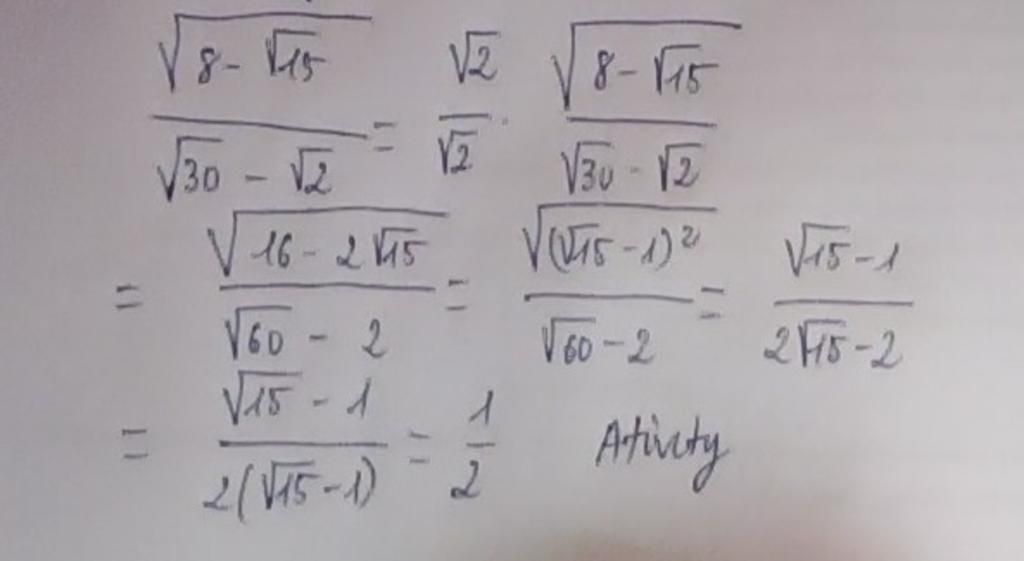 √(8 - √15) / (√30 - √2) = √2 / √2 · √(8 - √15) / (√30 - √2)
= √(16 - 2√15) / (√60 - 2) = √((√15 - 1)²) / (√60 - 2) = (√15 - 1) / (2√15 - 2)
= (√15 - 1) / (2(√15 - 1)) = 1 / 2